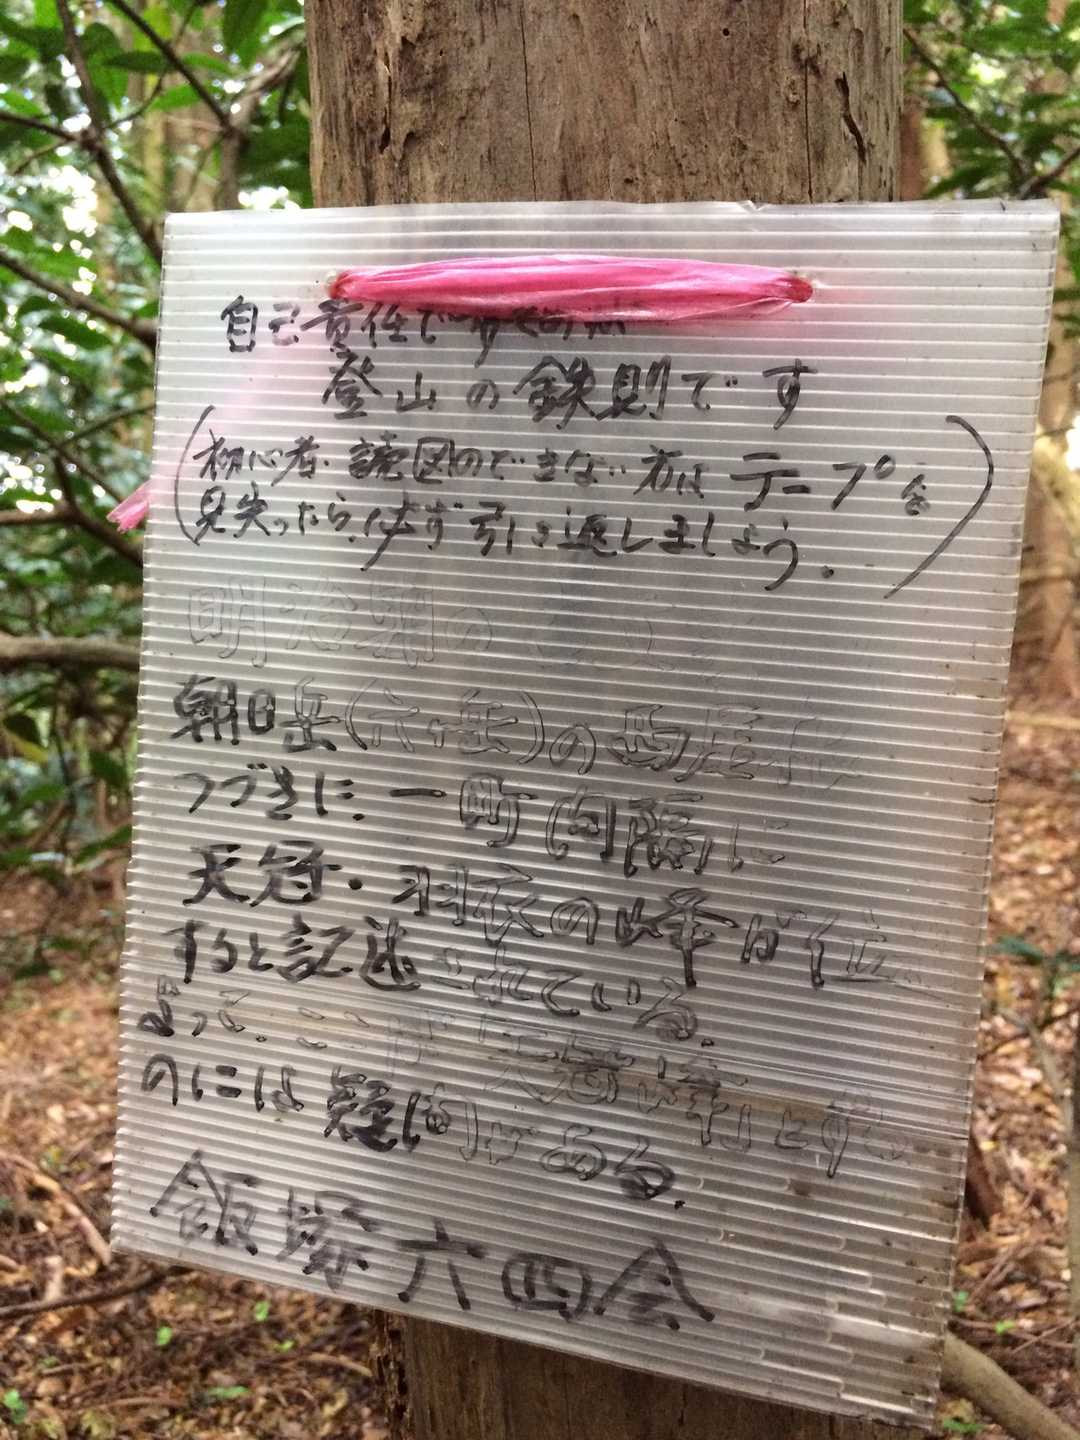 自己責任で
登山の鉄則です
(初心者、読図のできない方はテープを
見失ったら、必ず引き返しましょう。)
明治期の
朝日岳(六ヶ岳)の馬尾
つづきに、一町間隔に
天冠・羽衣の峰が位
すると記述されている。
よって、ここが天冠峰とする
のには疑問がある。
飯塚六四会